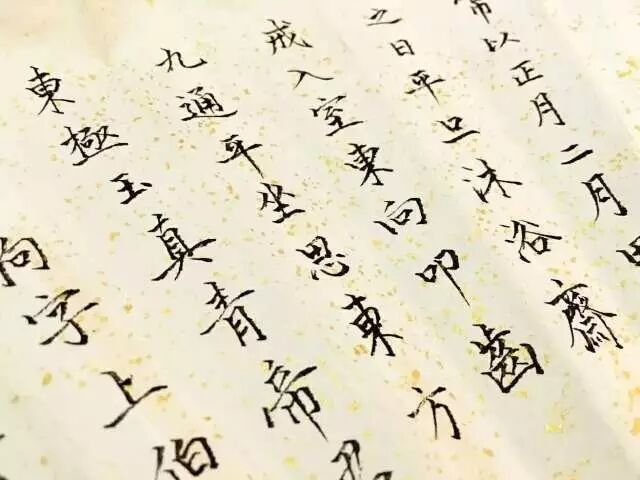 常以正月二月甲
之日平旦沐浴齋
戒入室東向叩齒
九通平坐思東方
東極玉真青帝君
拘字上伯